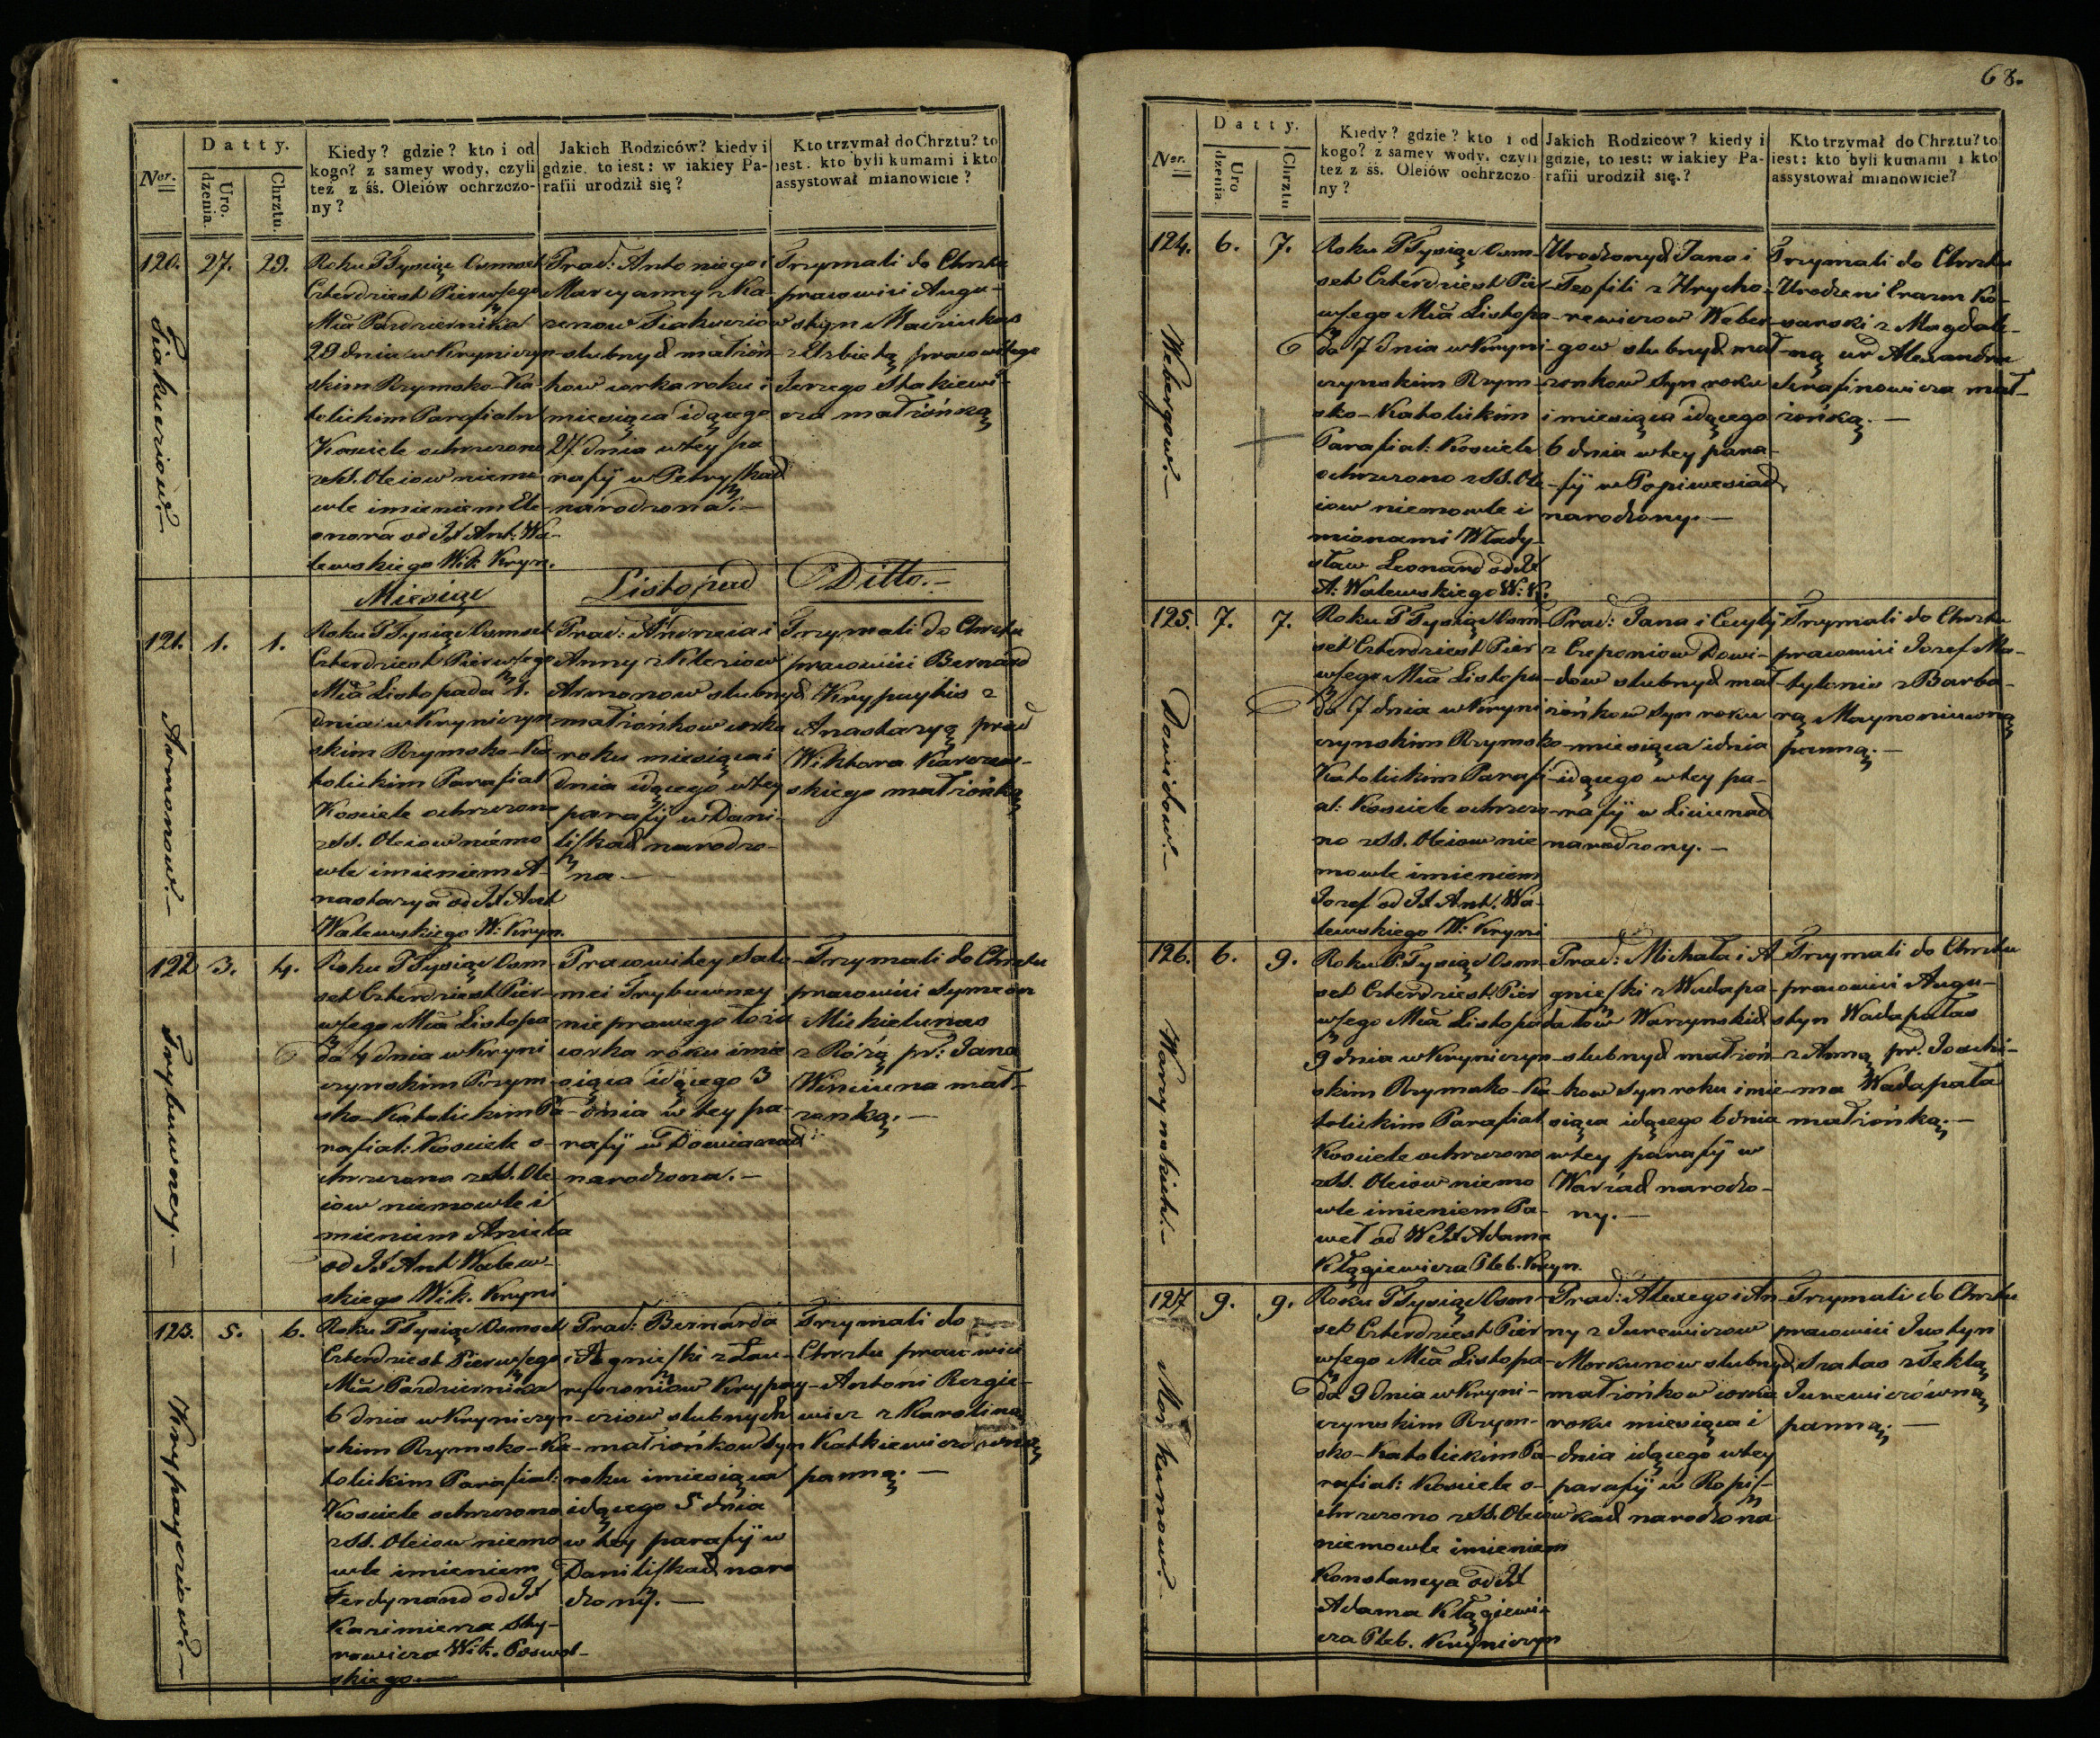 Datty.
Ner.
Uro.
dzenia.
Chrztu.
Kiedy? gdzie? kto i od
kogo? z samey wody, czyli
też z śś. Oleiów ochrzczo-
ny?
Jakich Rodziców? kiedy i
gdzie, to iest: w iakiey Pa-
rafii urodził się?
Kto trzymał do Chrztu? to
iest: kto byli kumami i kto
assystował mianowicie?
120. 27. 29.
Roku P Tysiąc Osmset
Czterdziest Pierwszego
Mca Pazdziernika
29 dnia w Kryniczyn-
skim Rzymsko-Ka-
tolickim Parafialn
Kosciele ochrzczono
z SS. Oleiow niemo
wle imieniem Ele-
onora od JX Ant: Wa-
lewskiego Wik Kryn.
Praw: Antoniego i
Maryanny z Ka-
slubnych małżon-
kow corka roku i
miesiąca idącego
27. dnia w tey pa
rafij w Petryszkach
narodzona.—
Trzymali do Chrztu
prawowici Augu-
styn Maciukas
z Elzbietą prawowitego
Jerzego Stakiewi-
cza małżonką
Miesiąc Listopad Ditto.—
121. 1. 1.
Armonow.—
Roku P Tysiąc Osmset
Czterdziest Pierwszego
Mca Listopada 1.
dnia w Kryniczyn
skim Rzymsko-Ka
tolickim Parafial
Kosciele ochrzczono
z SS. Oleiow niemo
wle imieniem A-
nastazya od JX Ant
Walewskiego W: Kryn.
Praw: Andrzeia i
Armonow slubnych
małżonkow corka
roku miesiąca i
dnia idącego w tey
parafij w Dani-
liszkach narodzo-
na—
Trzymali do Chrztu
prawowici Bernard
Krypaytis z
Anastazyą praw
Wiktora
skiego małżonką
122 3. 4.
Trybuwney.—
Roku P Tysiąc Osm-
set Czterdziest Pier-
wszego Mca Listopa
da 4 dnia w Kryni
czynskim Rzym-
sko-Katolickim Pa-
rafial: Kosciele o-
chrzczono z SS. Ole
iow niemowle i
mieniem Aniela
od JX Ant Walew-
skiego Wik. Kryni
Prawowitey Salo-
mei Trybuwney
nieprawego łoża
corka roku i mie
siąca idącego 3
dnia w tey pa-
rafij w
narodzona.—
Trzymali do Chrztu
prawowici Symeon
Mickielunas
z Rózą pr: Jana
Winciuna mał-
zonką.—
123. 5. 6.
Krypayciow.—
Roku P Tysiąc Osmset
Czterdziest Pierwszego
Mca Pazdziernika
6 dnia w Krynicyn-
skim Rzymsko-Ka-
tolickim Parafial:
Kosciele ochrzczono
z SS. Oleiow niemo
wle imieniem
Ferdynand od JX
Kazimierza Szy-
mowicza Wik. Poswol-
skiego.—
Praw: Bernarda
i Agnieszki z Law-
rysoniow Krypay-
ciow slubnych
małżonkow syn
roku i miesiąca
idącego 5 dnia
w tey parafij w
Daniliszkach naro
dzony.—
Trzymali do
Chrztu prawowici
Antoni Rezgie-
wicz z Karoliną
Katkiewiczowną
panną.—
68.
Datty.
Ner.
Uro
dzenia.
Chrztu
Kiedy? gdzie? kto i od
kogo? z samey wody, czyli
też z śś. Oleiów ochrzczo
ny?
Jakich Rodziców? kiedy i
gdzie, to iest: w iakiey Pa-
rafii urodził się.?
Kto trzymał do Chrztu? to
iest: kto byli kumami i kto
assystował mianowicie?
124. 6. 7.
Webergow.—
Roku P Tysiąc Osm-
set Czterdziest Pier
wszego Mca Listopa
da 7 dnia w Kryni-
czynskim Rzym-
sko-Katolickim
Parafial: Kosciele
ochrzczono z SS. Ole
iow niemowle i
mionami Włady-
sław Leonard od JX
A: Walewskiego W: K.
Urodzonych Jana i
Teofili z Hrycho-
rewiczow Weber-
gow slubnych mał-
zonkow syn roku
i miesiąca idącego
6 dnia w tey para-
fij w Popiwesiach
narodzony.—
Trzymali do Chrztu
Urodzeni Erazm Ko-
sarski z Magdale-
ną ur Alexandra
Serafinowicza mał-
żonką.—
125. 7. 7.
Dowidow.—
Roku P Tysiąc Osm
set Czterdziest Pier
wszego Mca Listopa
da 7 dnia w Kryni
czynskim Rzymsko
Katolickim Parafi
al: Kosciele ochrzczo
no z SS. Oleiow nie
mowle imieniem
Jozef od JX Ant. Wa-
lewskiego W: Kryni
Praw: Jana i Cecylij
z Czeponiow Dowi-
dow slubnych mał-
żonkow syn roku
miesiąca i dnia
idącego w tey pa-
rafij w Liciunach
narodzony.—
Trzymali do Chrztu
prawowici Jozef Ma-
tylonis z Barba-
rą Maynoniuwną
panną.—
126. 6. 9.
Warzynskich.—
Roku P. Tysiąc Osm
set Czterdziest Pier
wszego Mca Listopada
9 dnia w Krynicyn-
skim Rzymsko-Ka-
tolickim Parafial
Kosciele ochrzczono
z SS. Oleiow niemo
wle imieniem Pa-
weł od W JX Adama
Kłągiewicza Pleb. Kryn.
Praw: Michała i A
gnieszki z Wadapa-
łow Warzynskich
slubnych małżon-
kow syn roku i mie-
siąca idącego 6 dnia
w tey parafij w
narodzo-
ny.—
Trzymali do Chrztu
prawowici Augu-
styn Wadapałas
z Anną pr. Joachi-
ma Wadapała
małżonką.—
127 9. 9.
Morkunow.—
Roku P Tysiąc Osm-
set Czterdziest Pier
wszego Mca Listopa-
da 9 dnia w Kryni-
czynskim Rzym-
sko-Katolickim Pa-
rafial: Kosciele o-
chrzczono z SS. Oleiow
niemowle imieniem
Konstancya od JX
Adama Kłągiewi-
cza Pleb. Kryniczyn
Praw: Alexego i An-
ny z Jurewiczow
Morkunow slubnych
małżonkow corka
roku miesiąca i
dnia idącego w tey
parafij w Ropisz-
kach narodzona
Trzymali do Chrztu
prawowici Justyn
Szatas z Teklą
Jurewiczówną
panną.—